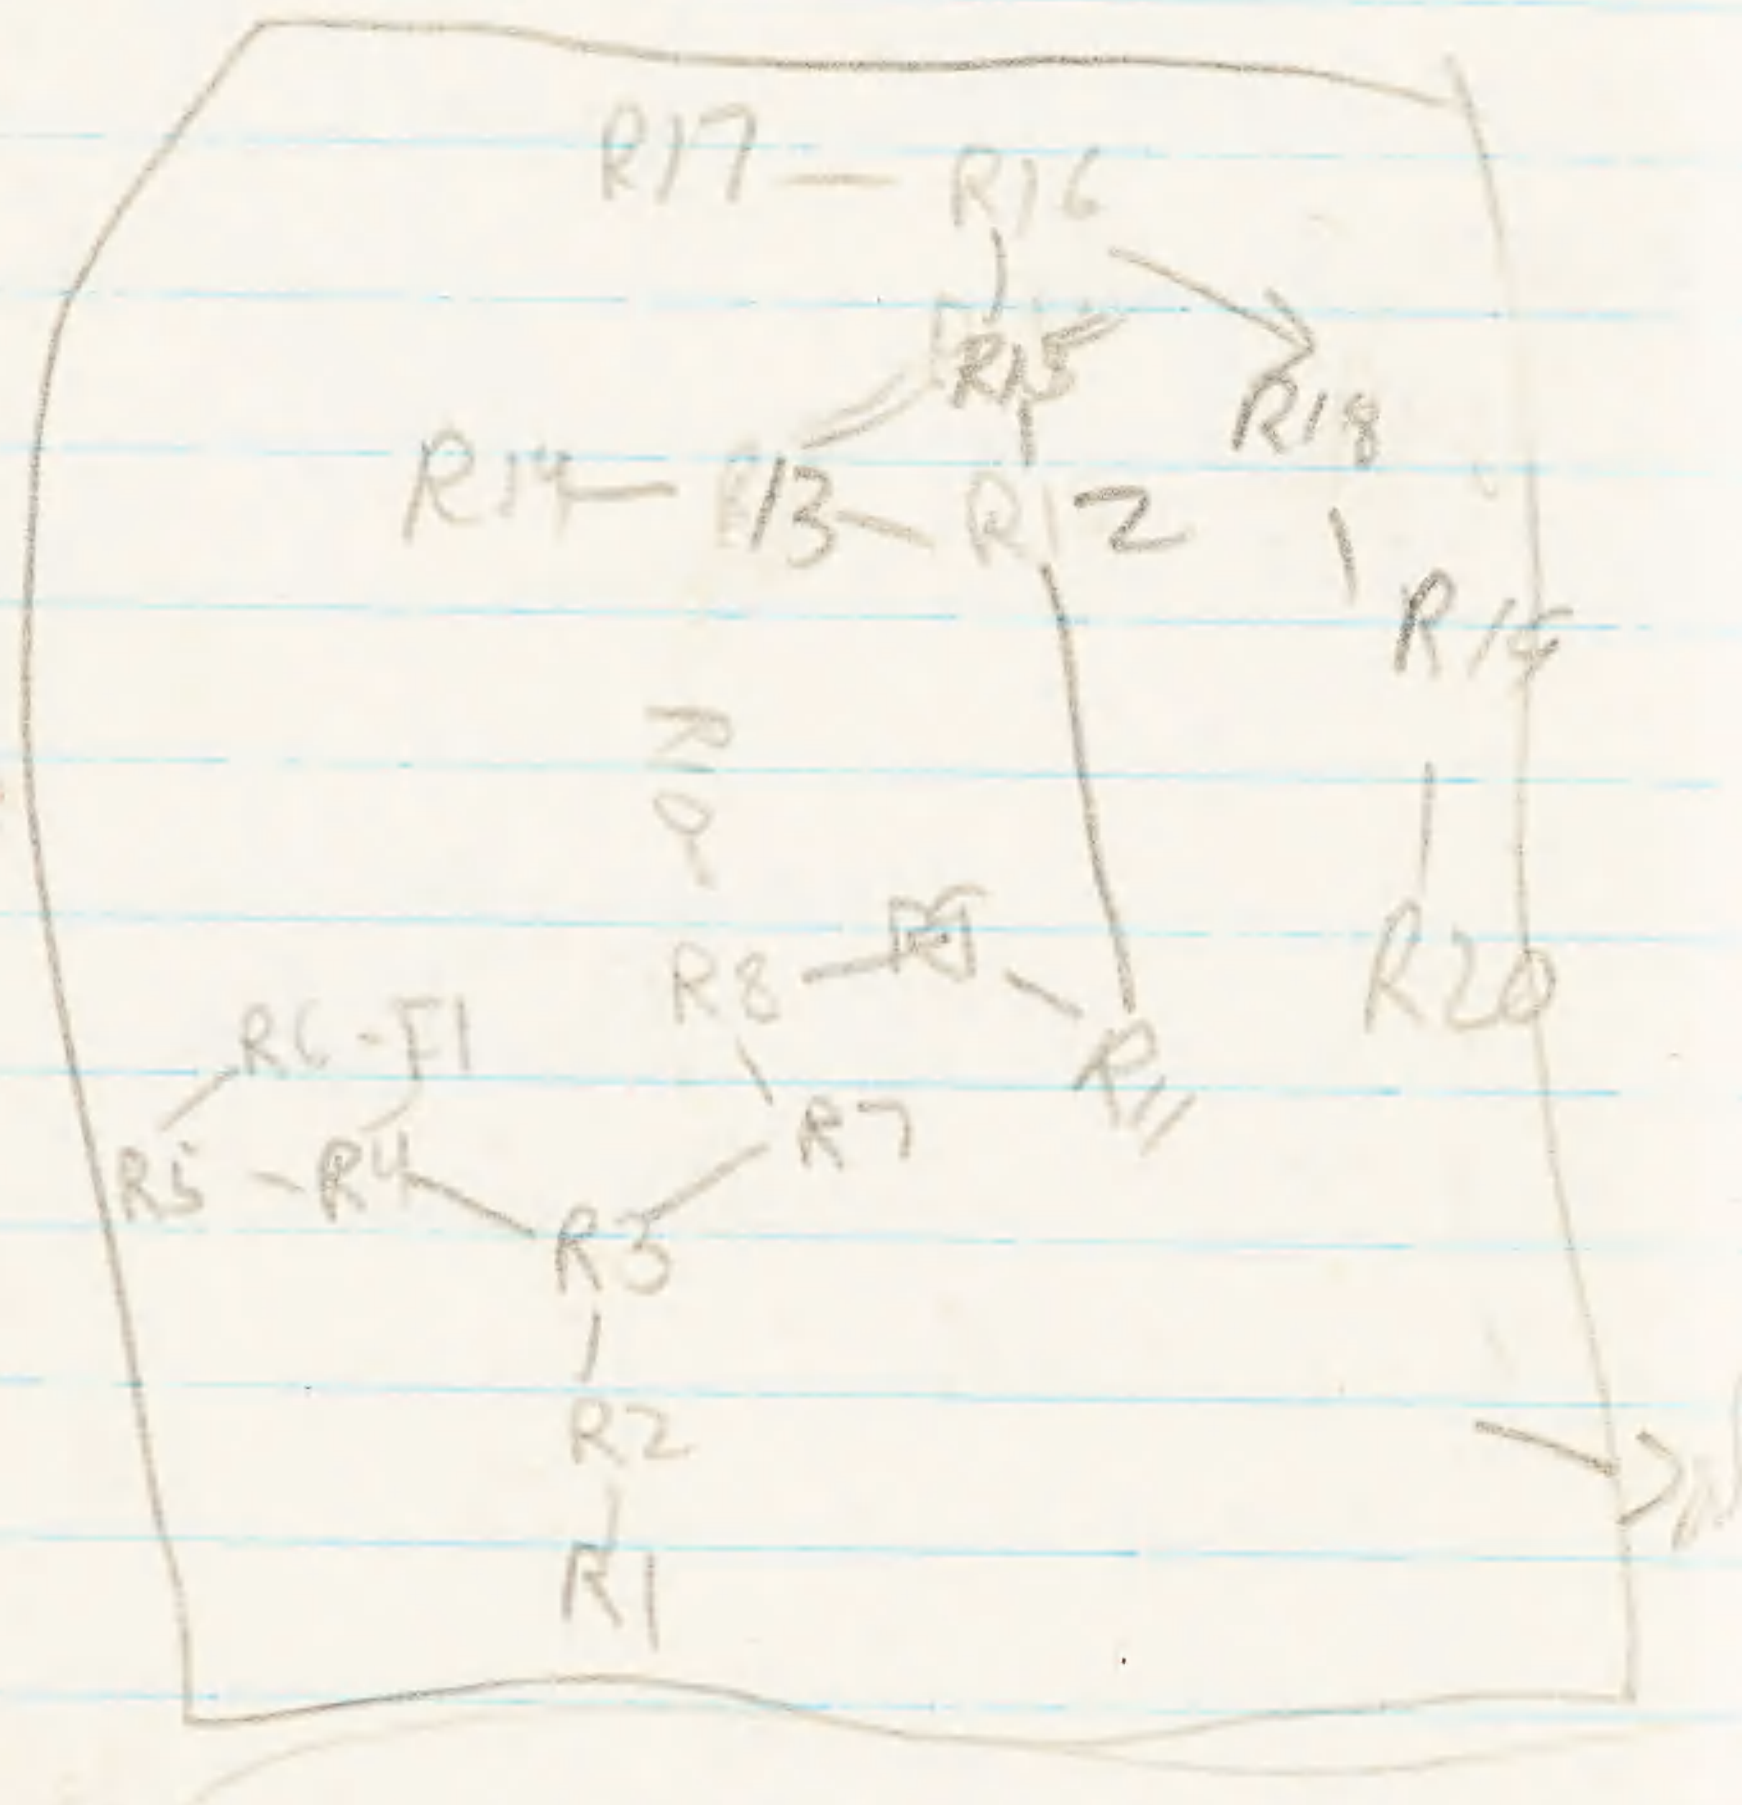 R17 — R16
R15
R18
R14 — 13 — R12
R19
R9
R8
R20
R6 - E1
R11
R7
R5 - R4
R3
R2
R1